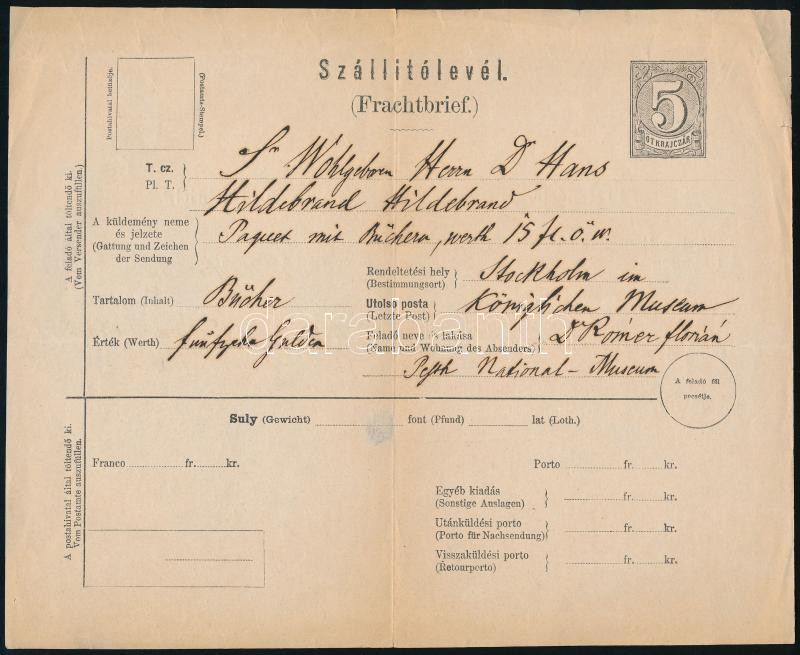 Szállitólevél.
(Frachtbrief.)
Postahivatal betüzője.
(Postamts-Stempel.)
5
ÖT KRAJCZÁR
A feladó által töltendő ki.
(Vom Versender auszufüllen.)
T. cz.
Pl. T.
Sr Wohlgeboren Herrn Dr Hans
Hildebrand Hildebrand
A küldemény neme
és jelzete
(Gattung und Zeichen
der Sendung
Paquet mit Büchern, werth 15 fl. ö. w.
Rendeltetési hely
(Bestimmungsort)
Stockholm im
Tartalom (Inhalt)
Bücher
Utolsó posta
(Letzte Post)
Königlichen Museum
Érték (Werth)
fünfzehn Gulden
Feladó neve s lakása
(Name und Wohnung des Absenders)
Dr Romer flórián
Pesth National-Museum
A feladó fél
pecsétje.
darabanth
A postahivatal által töltendő ki.
Vom Postamte auszufüllen.
Suly (Gewicht) font (Pfund) lat (Loth.)
Franco fr. kr.
Porto fr. kr.
Egyéb kiadás
(Sonstige Auslagen) fr. kr.
Utánküldési porto
(Porto für Nachsendung) fr. kr.
Visszaküldési porto
(Retourporto) fr. kr.